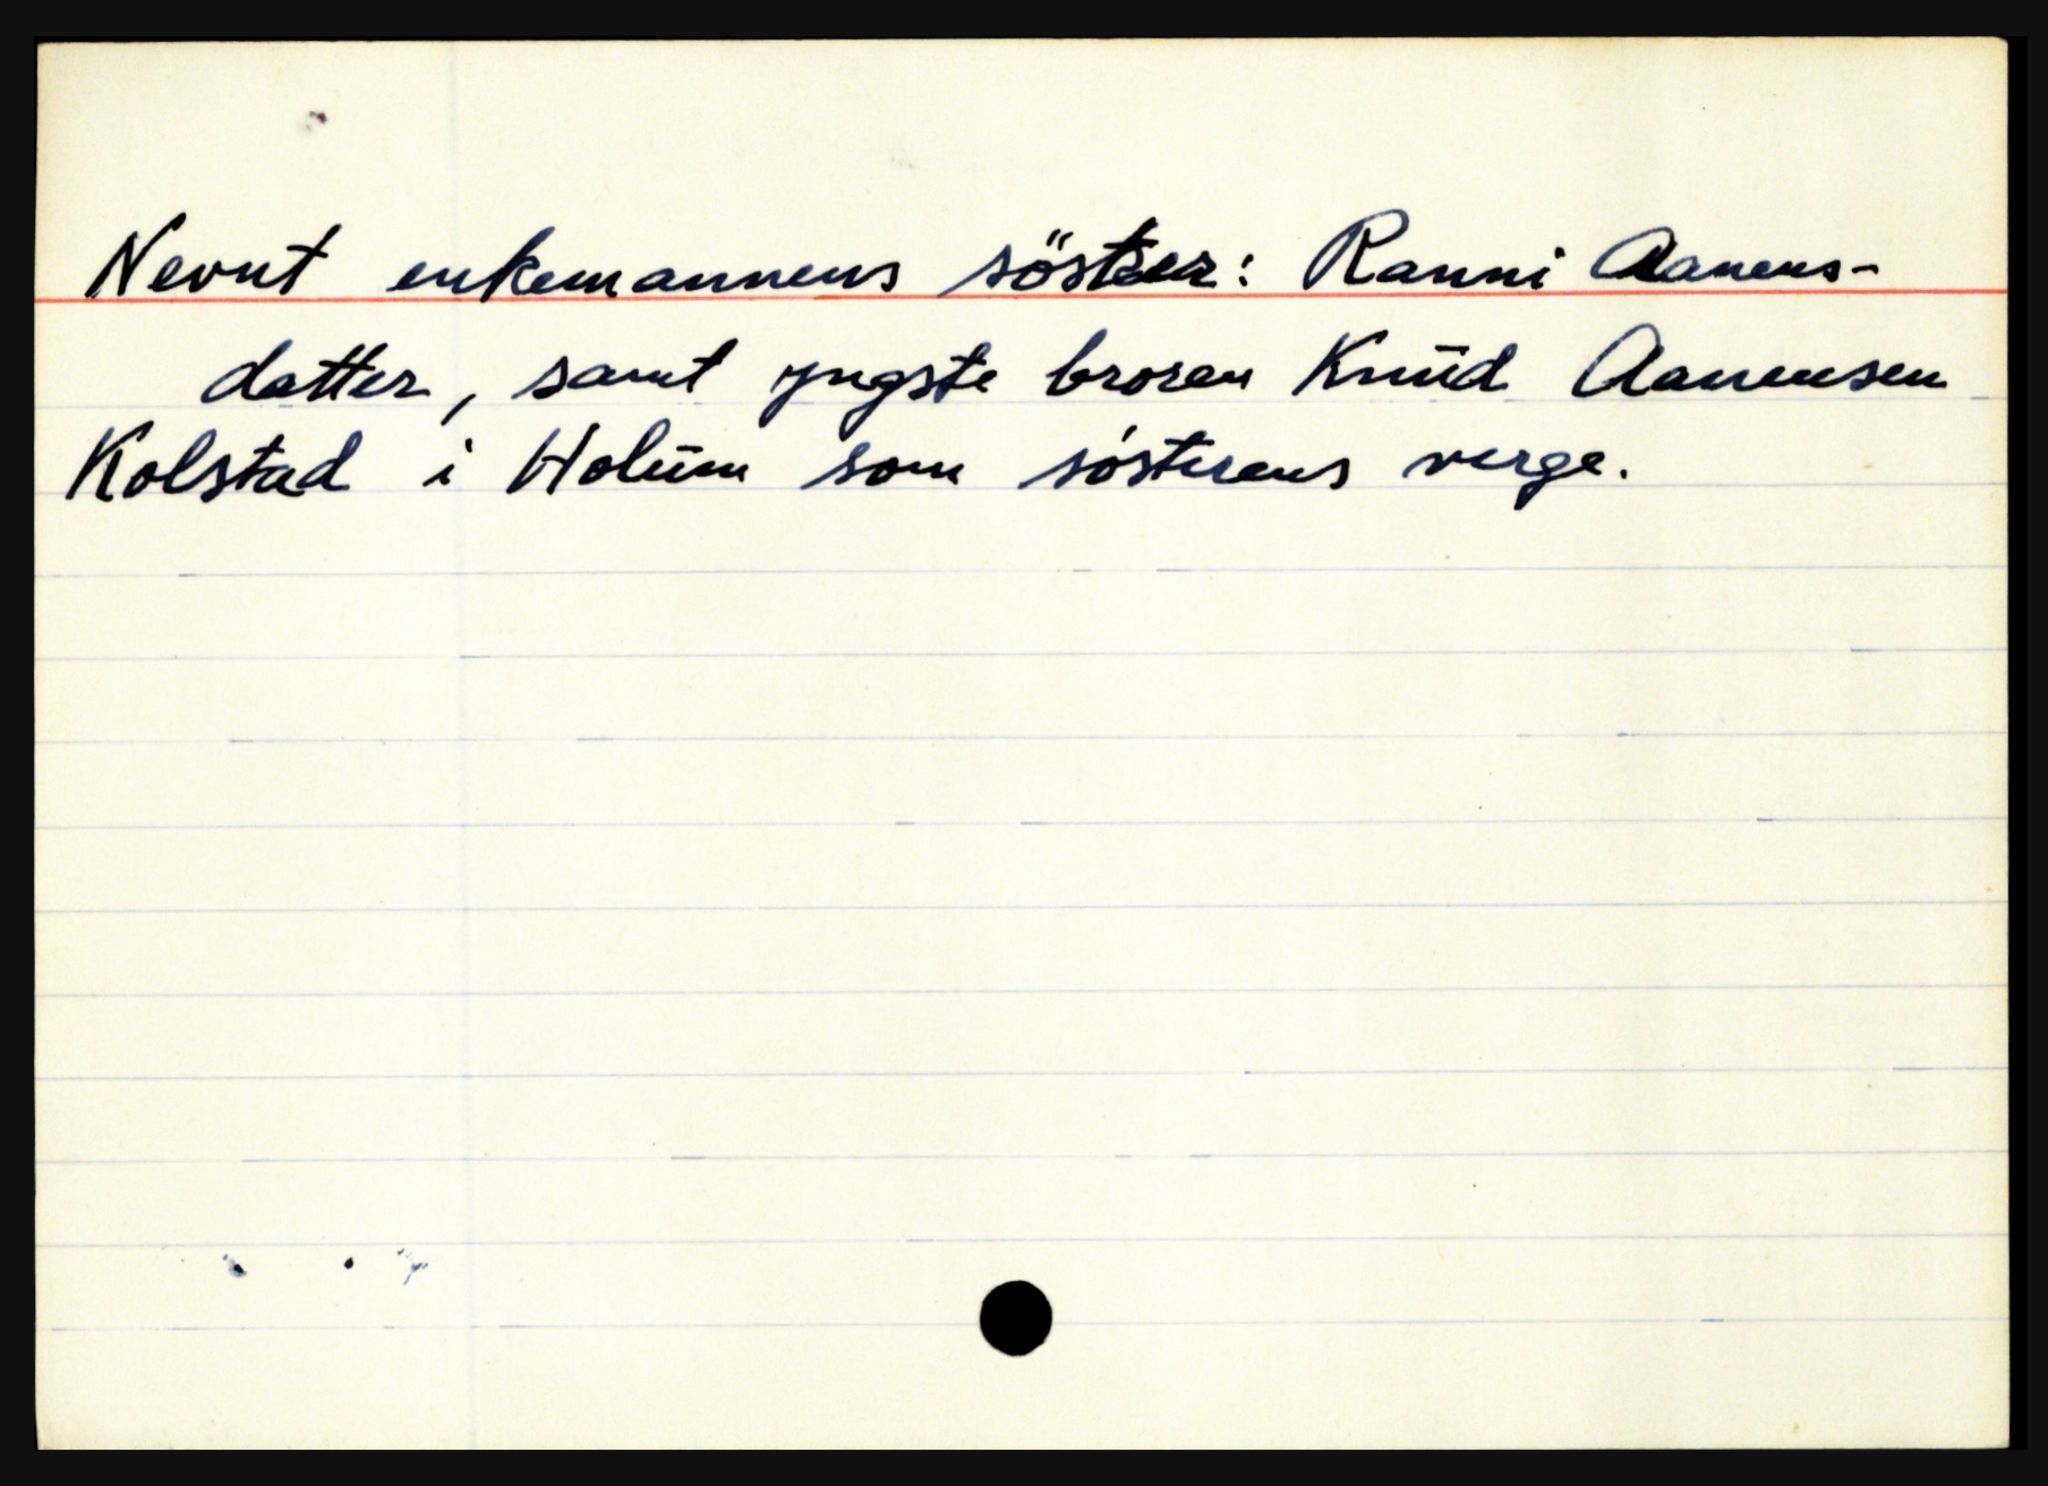 Nevnt enkemannens söster: Ranni Aanens-
datter, samt yngste broren Knūd Aanensen
Kolstad i Holūm som sósterens verge.